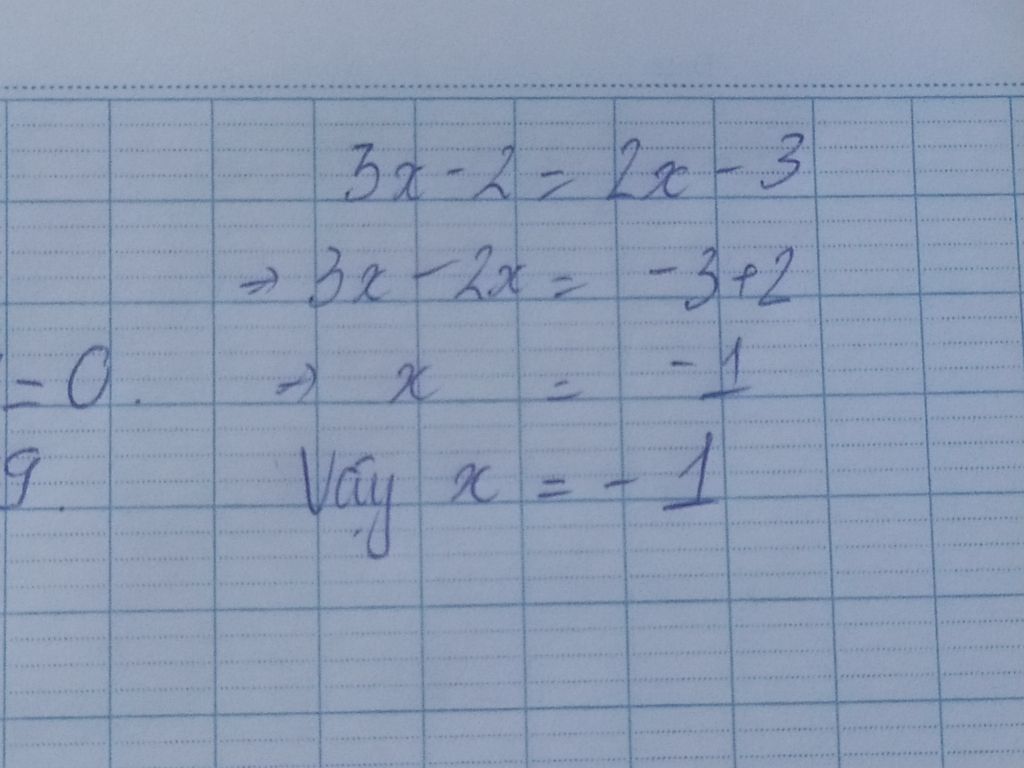 3x - 2 = 2x - 3
=> 3x - 2x = -3 + 2
= 0. => x = -1
9. Vậy x = -1